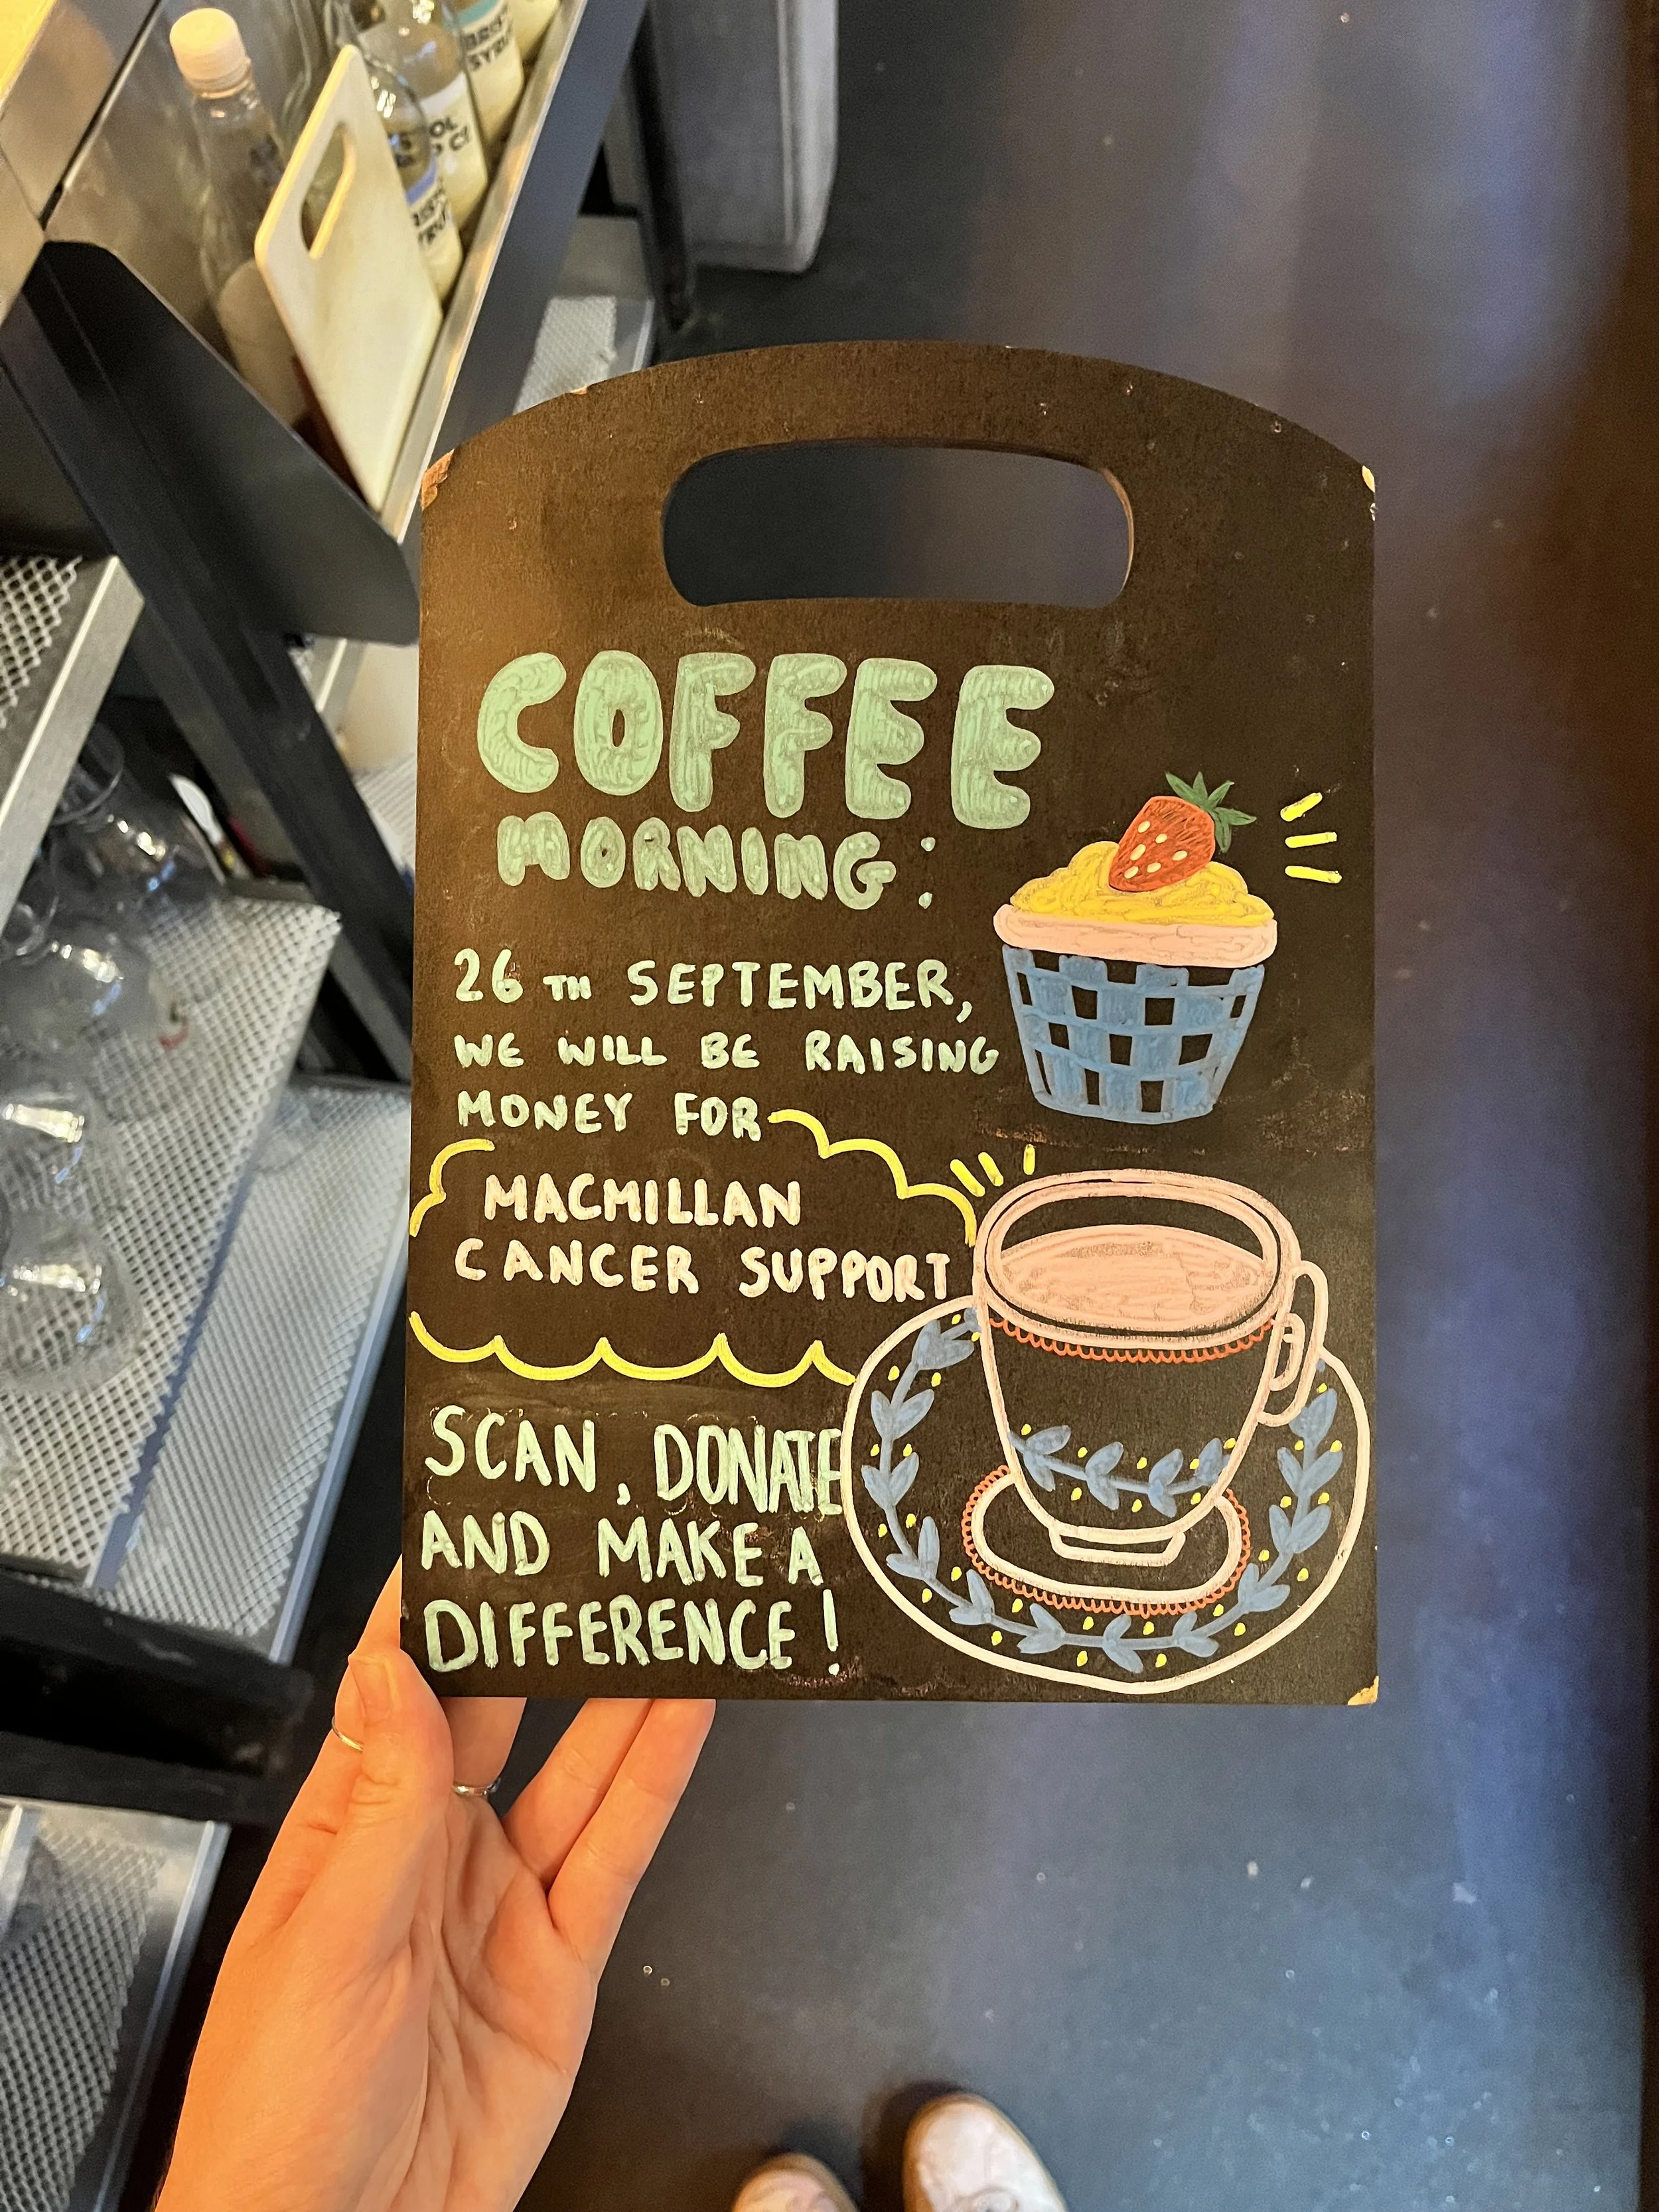 COFFEE
MORNING:
26TH SEPTEMBER,
WE WILL BE RAISING
MONEY FOR
MACMILLAN
CANCER SUPPORT
SCAN, DONATE
AND MAKE A
DIFFERENCE!